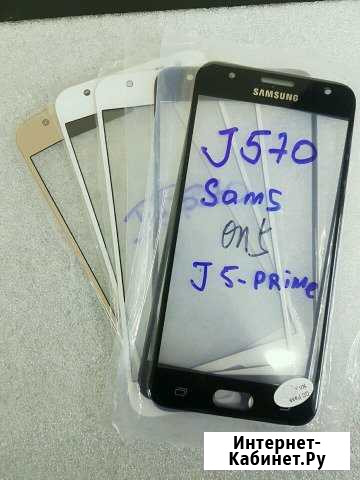 SAMSUNG
J570
Sams
on5
J5-PRIME
QC Pass
Интернет-
Кабинет.Ру